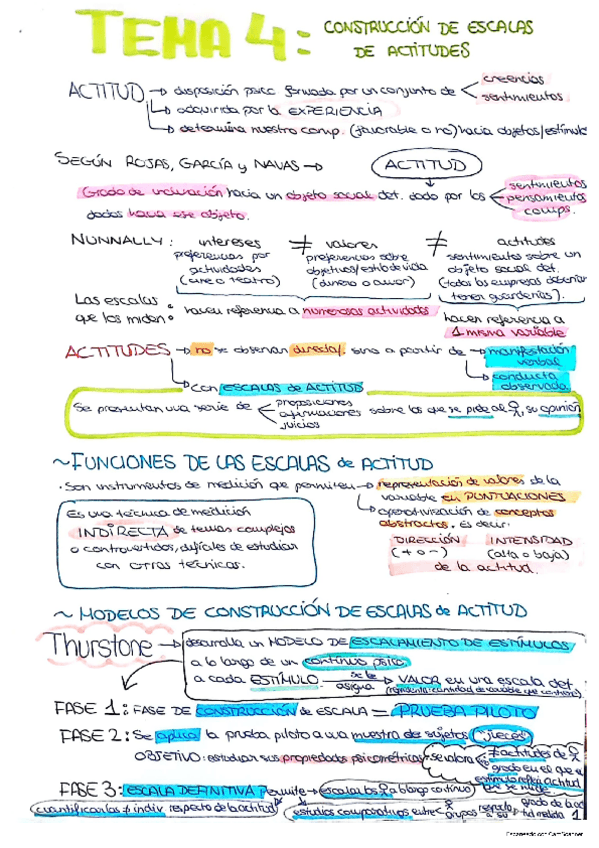 TEMA 4: CONSTRUCCIÓN DE ESCALAS
DE ACTITUDES
ACTITUD → disposición psicc formada por un conjunto de < creencias
sentimientos
→ adquirida por la EXPERIENCIA
→ determina nuestro comp. (favorable o no) hacia objetos/estímulo
SEGÚN ROJAS, GARCÍA y NAVAS → ACTITUD
Grado de inclinación hacia un objeto social det. dado por los < sentimientos
pensamientos
comps.
dados hacia ese objeto.
NUNNALLY: intereses ≠ valores ≠ actitudes
preferencias por preferencias sobre sentimientos sobre un
actividades objetivos/estilo de vida objeto social det.
(cine o teatro) (dinero o amor) (todas las empresas deberían
tener guarderías).
Las escalas
que los miden: hacen referencia a numerosas actividades hacen referencia a
1 misma variable
ACTITUDES → no se observan directa/. sino a partir de → manifestación
verbal
→ conducta
observada
→ con ESCALAS de ACTITUD
Se presentan una serie de < proposiciones
afirmaciones sobre las que se pide al su opinión
juicios
~ FUNCIONES DE LAS ESCALAS de ACTITUD
· Son instrumentos de medición que permiten → representación de valores de la
variable en PUNTUACIONES
→ operativización de conceptos
abstractos. Es decir:
Es una técnica de medición
INDIRECTA de temas complejos
o controvertidos, difíciles de estudiar
con otras técnicas.
DIRECCIÓN INTENSIDAD
(+ o -) (alta o baja)
de la actitud.
~ MODELOS DE CONSTRUCCIÓN DE ESCALAS de ACTITUD
Thurstone → desarrolla un MODELO DE ESCALAMIENTO DE ESTÍMULOS
a lo largo de un continuo psico.
a cada ESTÍMULO se le asigna → VALOR en una escala det.
(representa cantidad de variable que contiene)
FASE 1: FASE DE CONSTRUCCIÓN de ESCALA = PRUEBA PILOTO
FASE 2: Se aplica la prueba piloto a una muestra de sujetos ("jueces")
OBJETIVO: estudiar sus propiedades psicométricas → se valora ≠ actitudes de
grado en el que el
estímulo refleja actitud
que se mide
FASE 3: ESCALA DEFINITIVA permite → escalar los a lo largo continuo
cuantificar las ≠ indiv. respecto de la actitud estudios comparativos entre grupos respecto a su grado de la act
medida
Escaneado con CamScanner